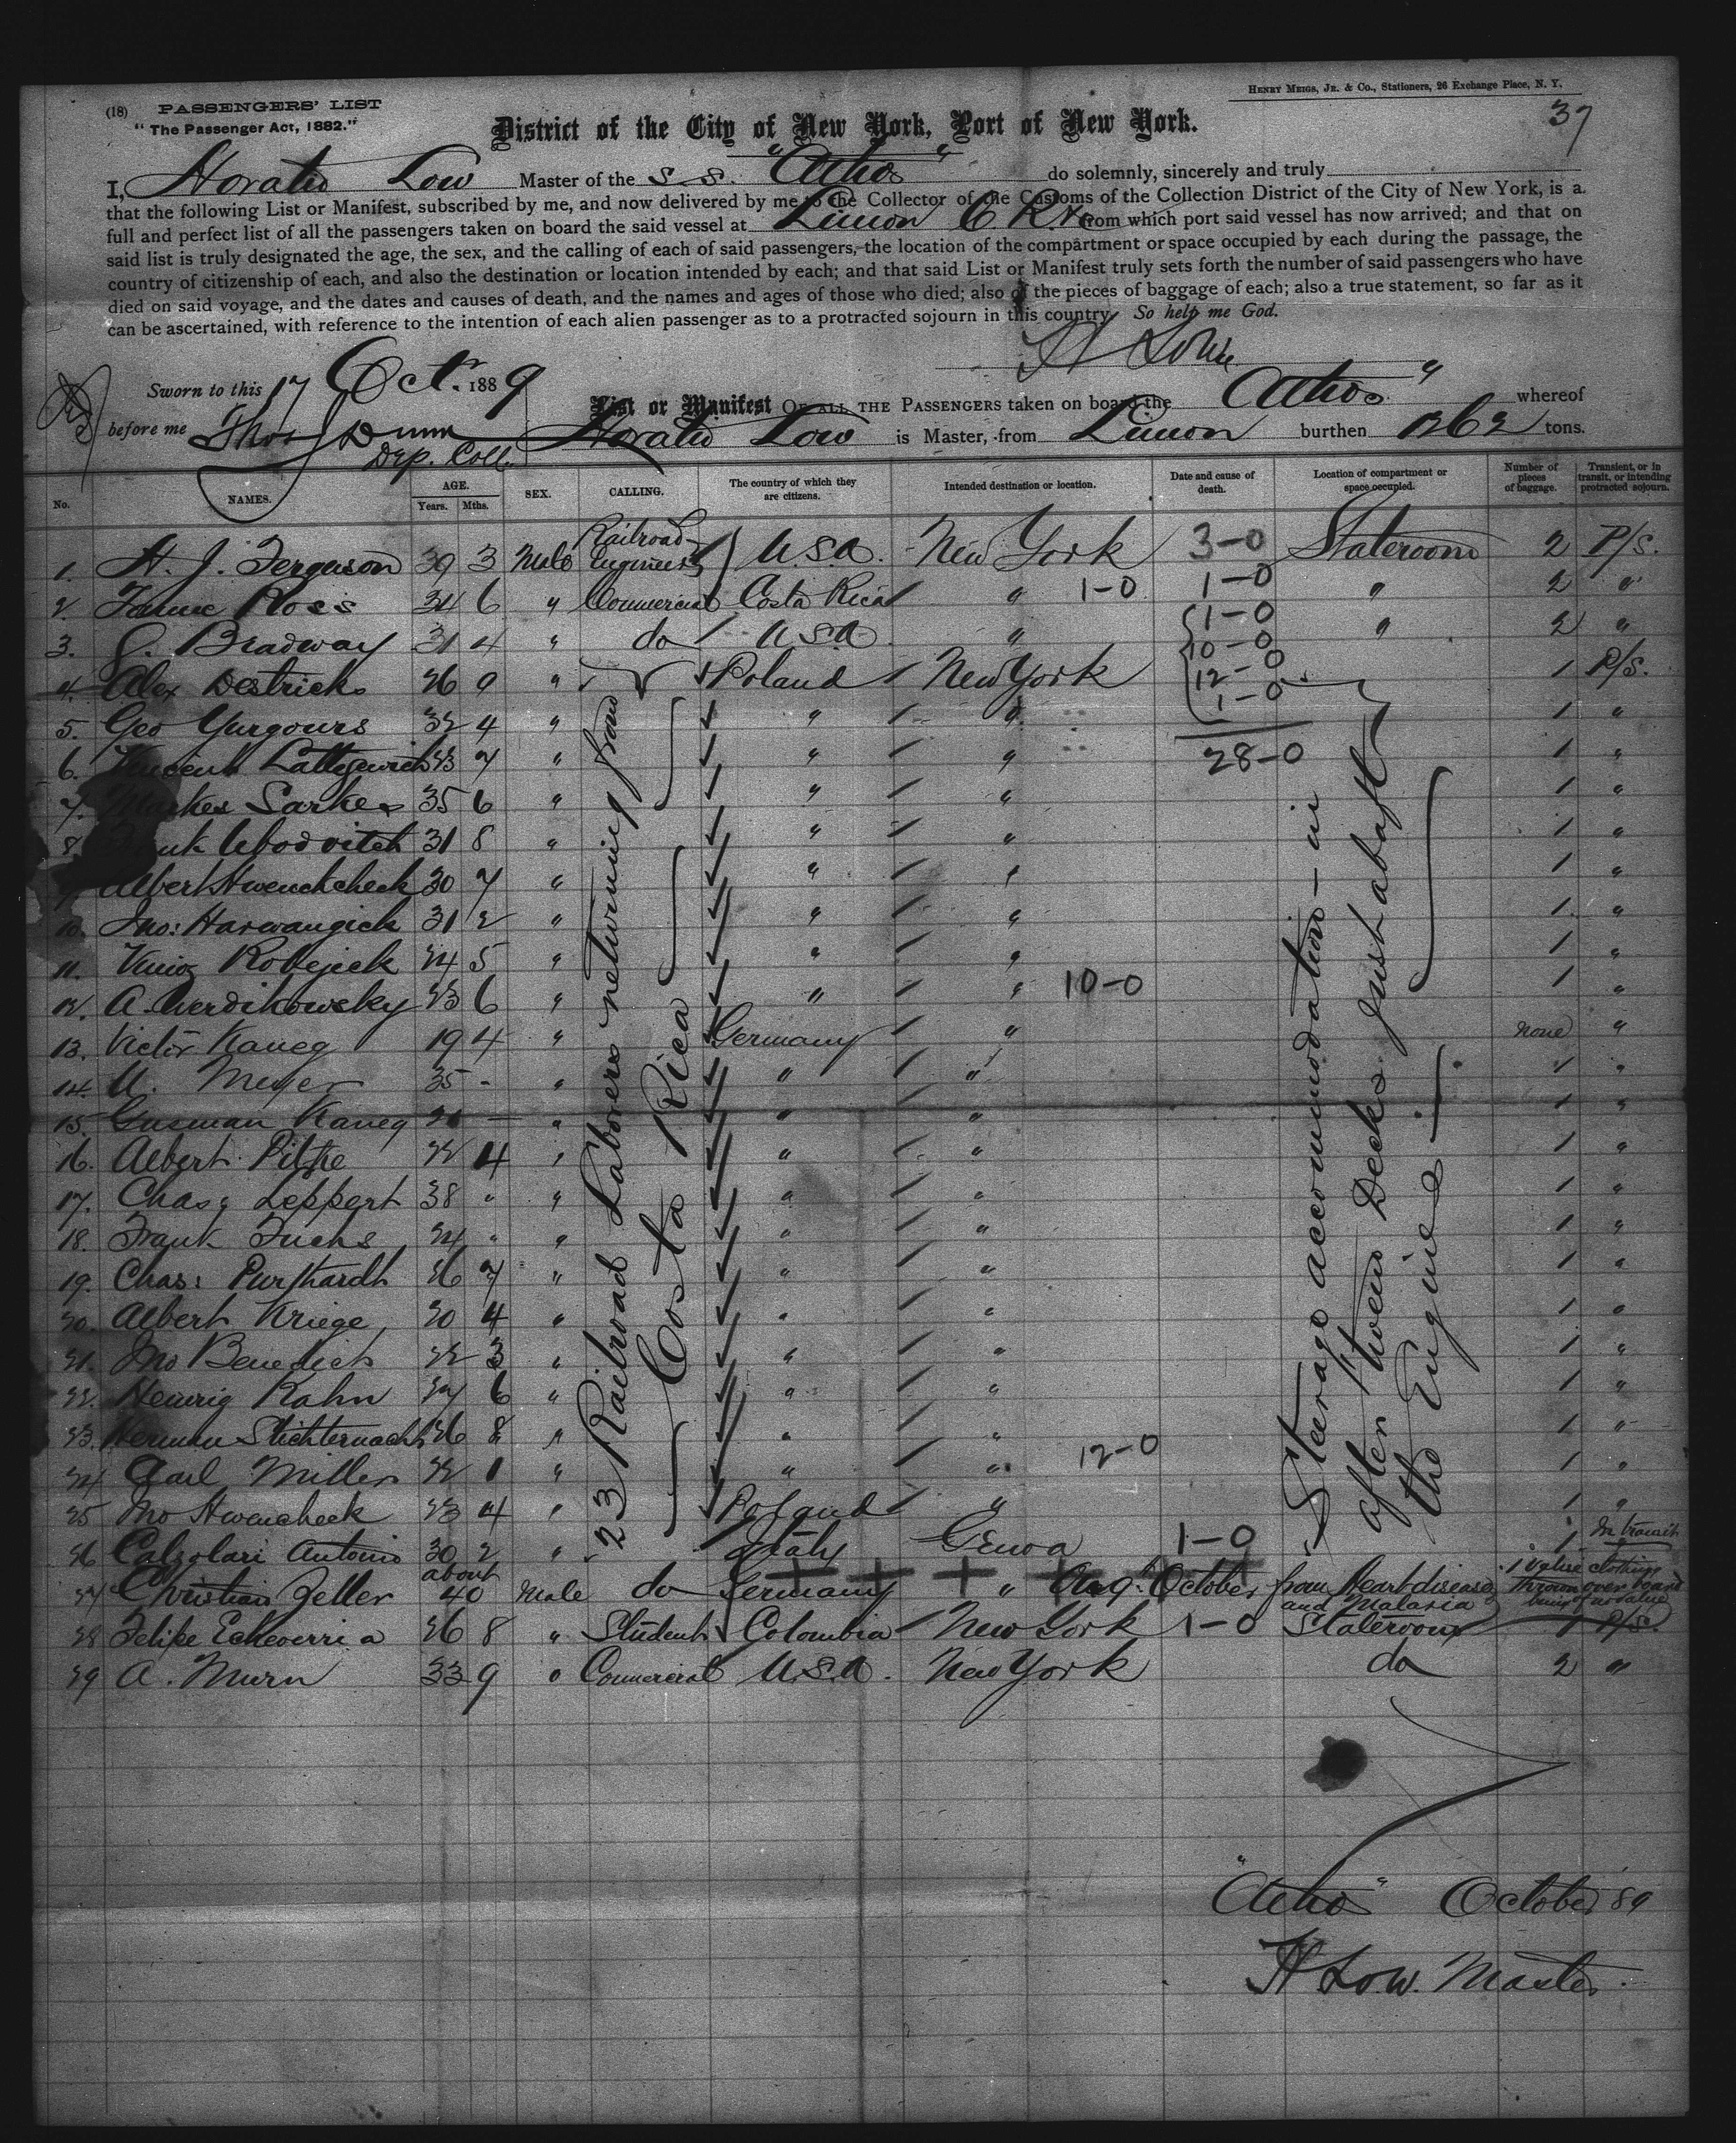 HENRY MEIGS, JR. & CO., Stationers, 26 Exchange Place, N. Y.
(18) PASSENGERS' LIST
37
"The Passenger Act, 1882."
District of the City of New York, Port of New York.
I, Horatio Low Master of the S. S. "Athos" do solemnly, sincerely and truly
that the following List or Manifest, subscribed by me, and now delivered by me to the Collector of the Customs of the Collection District of the City of New York, is a
full and perfect list of all the passengers taken on board the said vessel at Limon C. R. from which port said vessel has now arrived; and that on
said list is truly designated the age, the sex, and the calling of each of said passengers, the location of the compartment or space occupied by each during the passage, the
country of citizenship of each, and also the destination or location intended by each; and that said List or Manifest truly sets forth the number of said passengers who have
died on said voyage, and the dates and causes of death, and the names and ages of those who died; also of the pieces of baggage of each; also a true statement, so far as it
can be ascertained, with reference to the intention of each alien passenger as to a protracted sojourn in this country. So help me God.
H Low
Sworn to this 17 Oct. 1889
List or Manifest OF ALL THE PASSENGERS taken on board the "Athos" whereof
before me Thos J Dunn Horatio Low is Master, from Limon burthen 1262 tons.
Dep. Coll.
No. NAMES. AGE. Years. Mths. SEX. CALLING. The country of which they are citizens. Intended destination or location. Date and cause of death. Location of compartment or space occupied. Number of pieces of baggage. Transient, or in transit, or intending protracted sojourn.
1. H. J. Ferguson 39 3 Male Railroad Engineer U.S.A. New York 3-0 Stateroom 2 P/S.
2. Ross 34 6 " Commercial Costa Rica " 1-0 1-0 " 2 "
3. Bradway 31 4 " do U.S.A. " 1-0 " 2 "
10-0
4. Alex Destricks 26 9 " Poland New York 12-0 1 P/S.
1-0
5. Geo Yurgours 32 4 " " " 1 "
28-0
6. Vincent 23 7 " " " 1 "
7. Sarkes 35 6 " " " 1 "
8. 31 8 " " " 1 "
9. Albert Hwenckcheck 30 7 " " " 1 "
10. Jno: Harwangick 31 2 " " " 1 "
11. Robejick 24 5 " " " 1 "
12. A. 23 6 " " " 10-0 1 "
13. Victor Kaneg 19 4 " Germany " none "
14. U. Meyer 35 - " " " 1 "
15. Gusman Kaneg - " " " 1 "
16. Albert Piltze 22 4 " " " 1 "
17. Chas: Leppert 38 " " " " 1 "
18. Frank Fuchs 24 " " " " 1 "
19. Chas: Purshardt 26 7 " " " 1 "
20. Albert Kriege 20 4 " " " 1 "
21. Jno Benedict 22 3 " " " 1 "
22. Henrig Rahn 27 6 " " " 1 "
23. Herman Stichternacht 26 8 " " " 1 "
24 Carl Miller 22 1 " " " 12-0 1 "
25 Jno Hwencheck 23 4 " Poland " 1 "
23 Railroad Laborers returning from
Costa Rica
Steerage accommodation - in
after 'tween Decks just abaft
the Engines.
26 Calzolari Antonio 30 2 " Italy Genoa 1-0 1 In transit
27 Christian Zeller about 40 Male do Germany " October from Heart disease and Malaria 1 Valise clothing thrown overboard being of no value
28 Felipe Echeverria 26 8 " Student Colombia New York 1-0 Stateroom 1 P/S.
29 A. Murn 33 9 " Commercial U.S.A. New York do 2 "
"Athos" October 89
H Low. Master